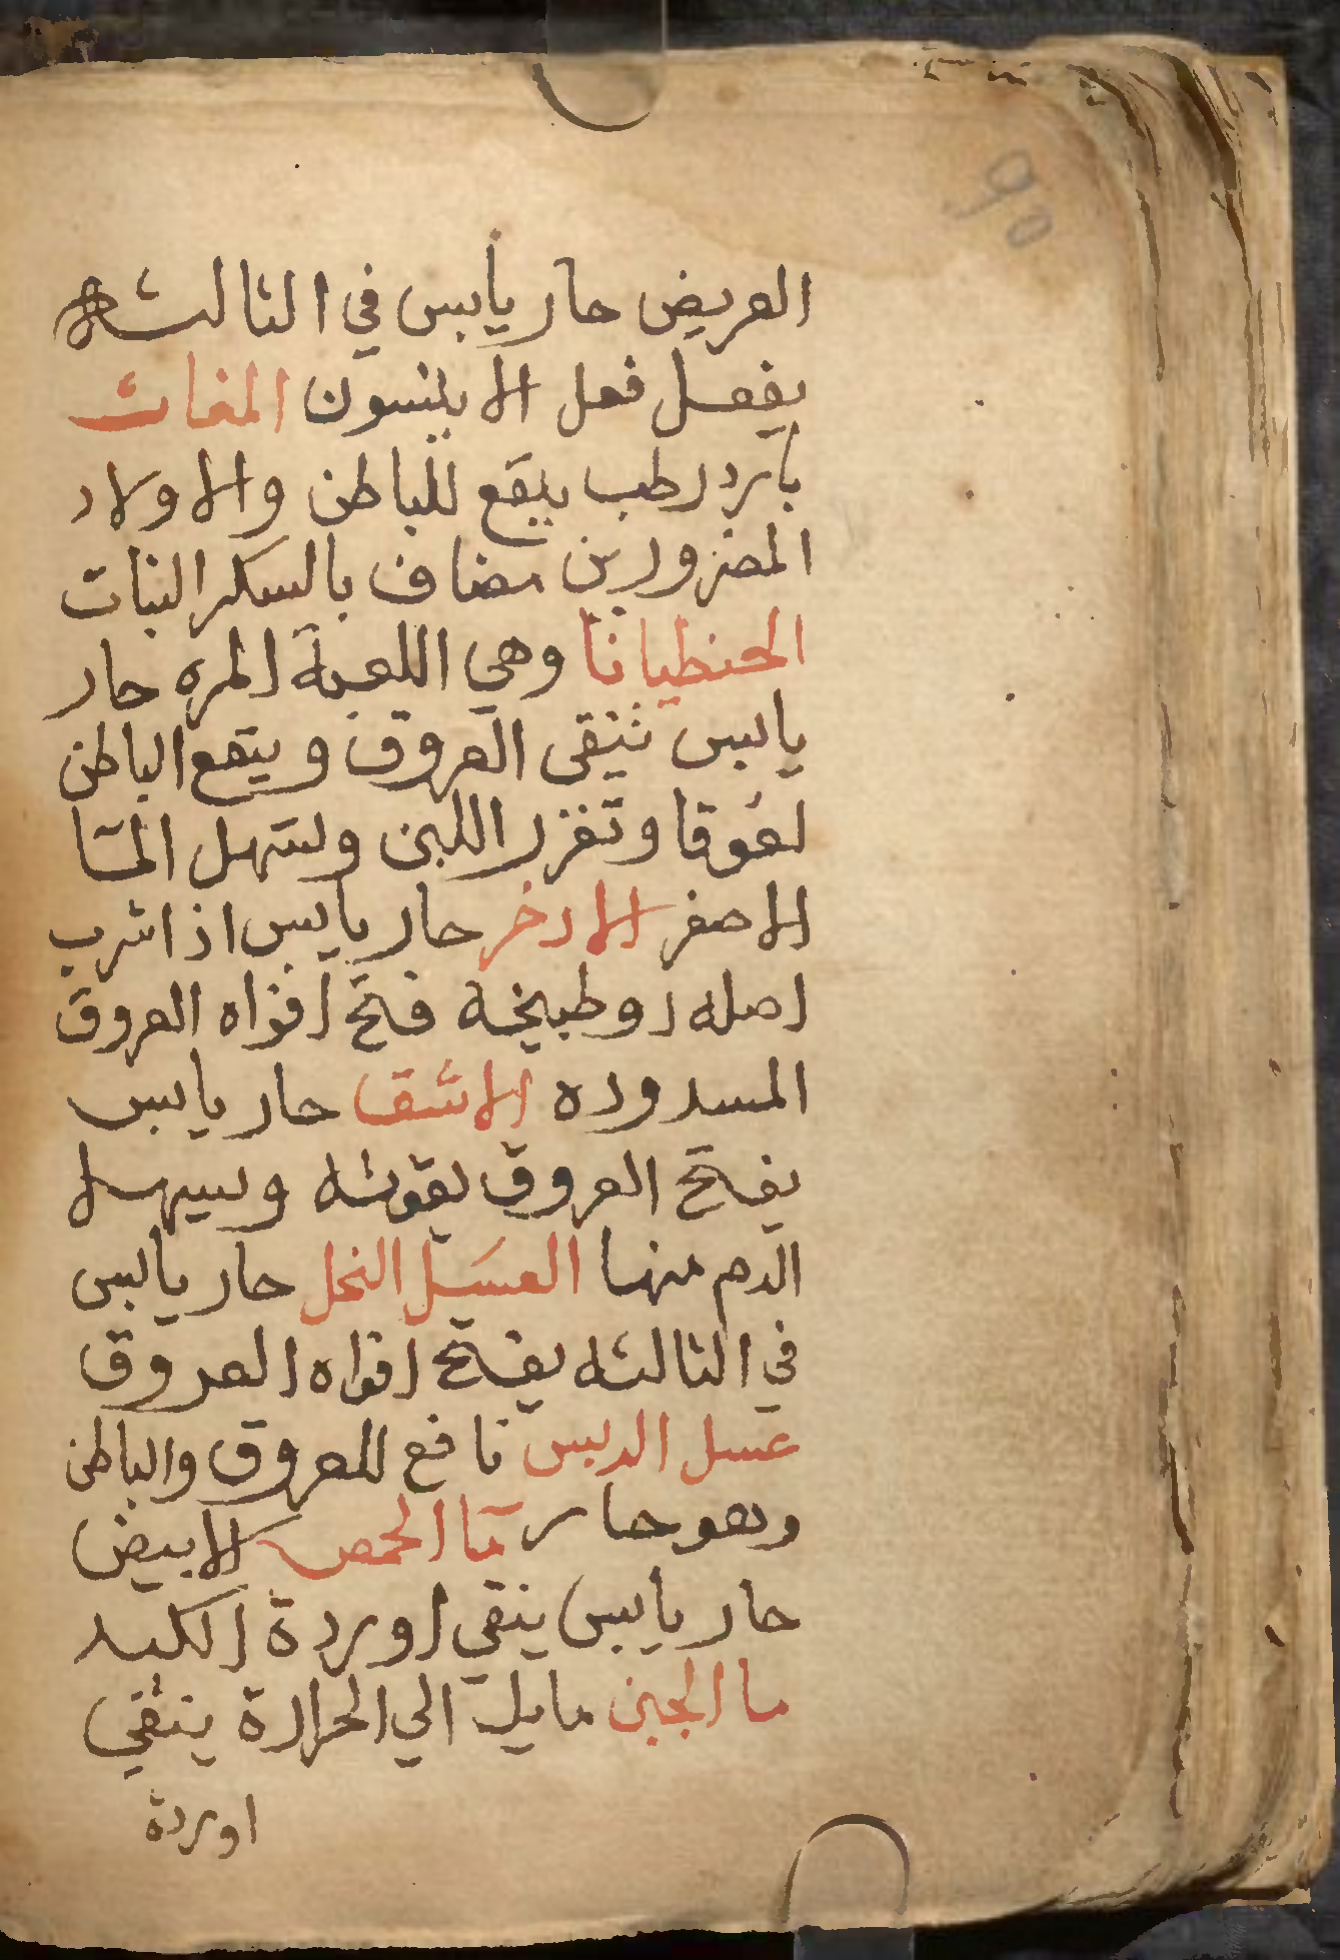 ٩٥
العريض حار يابس في الثالثه
يفعل فعل الاينسون المغاث
بارد رطب ينفع للباطن والاولاد
المضرورين مضاف بالسكر النبات
الجنطيانا وهي اللعبة المره حار
يابس تنقى العروق وينفع الباطن
لعوقا وتغزر اللبن وتسهل الما
الاصفر الادخر حار يابس اذا شرب
اصله او طبيخه فتح افواه العروق
المسدوده الاشق حار يابس
يفتح العروق بقوته ويسهل
الدم منها العسل النحل حار يابس
في الثالثه يفتح افواه العروق
عسل الدبس نافع للعروق والباطن
وهو حار مآ الحمص الابيض
حار يابس ينقي اوردة الكبد
ما الجبن مايل الي الحرارة ينقي
اوردة